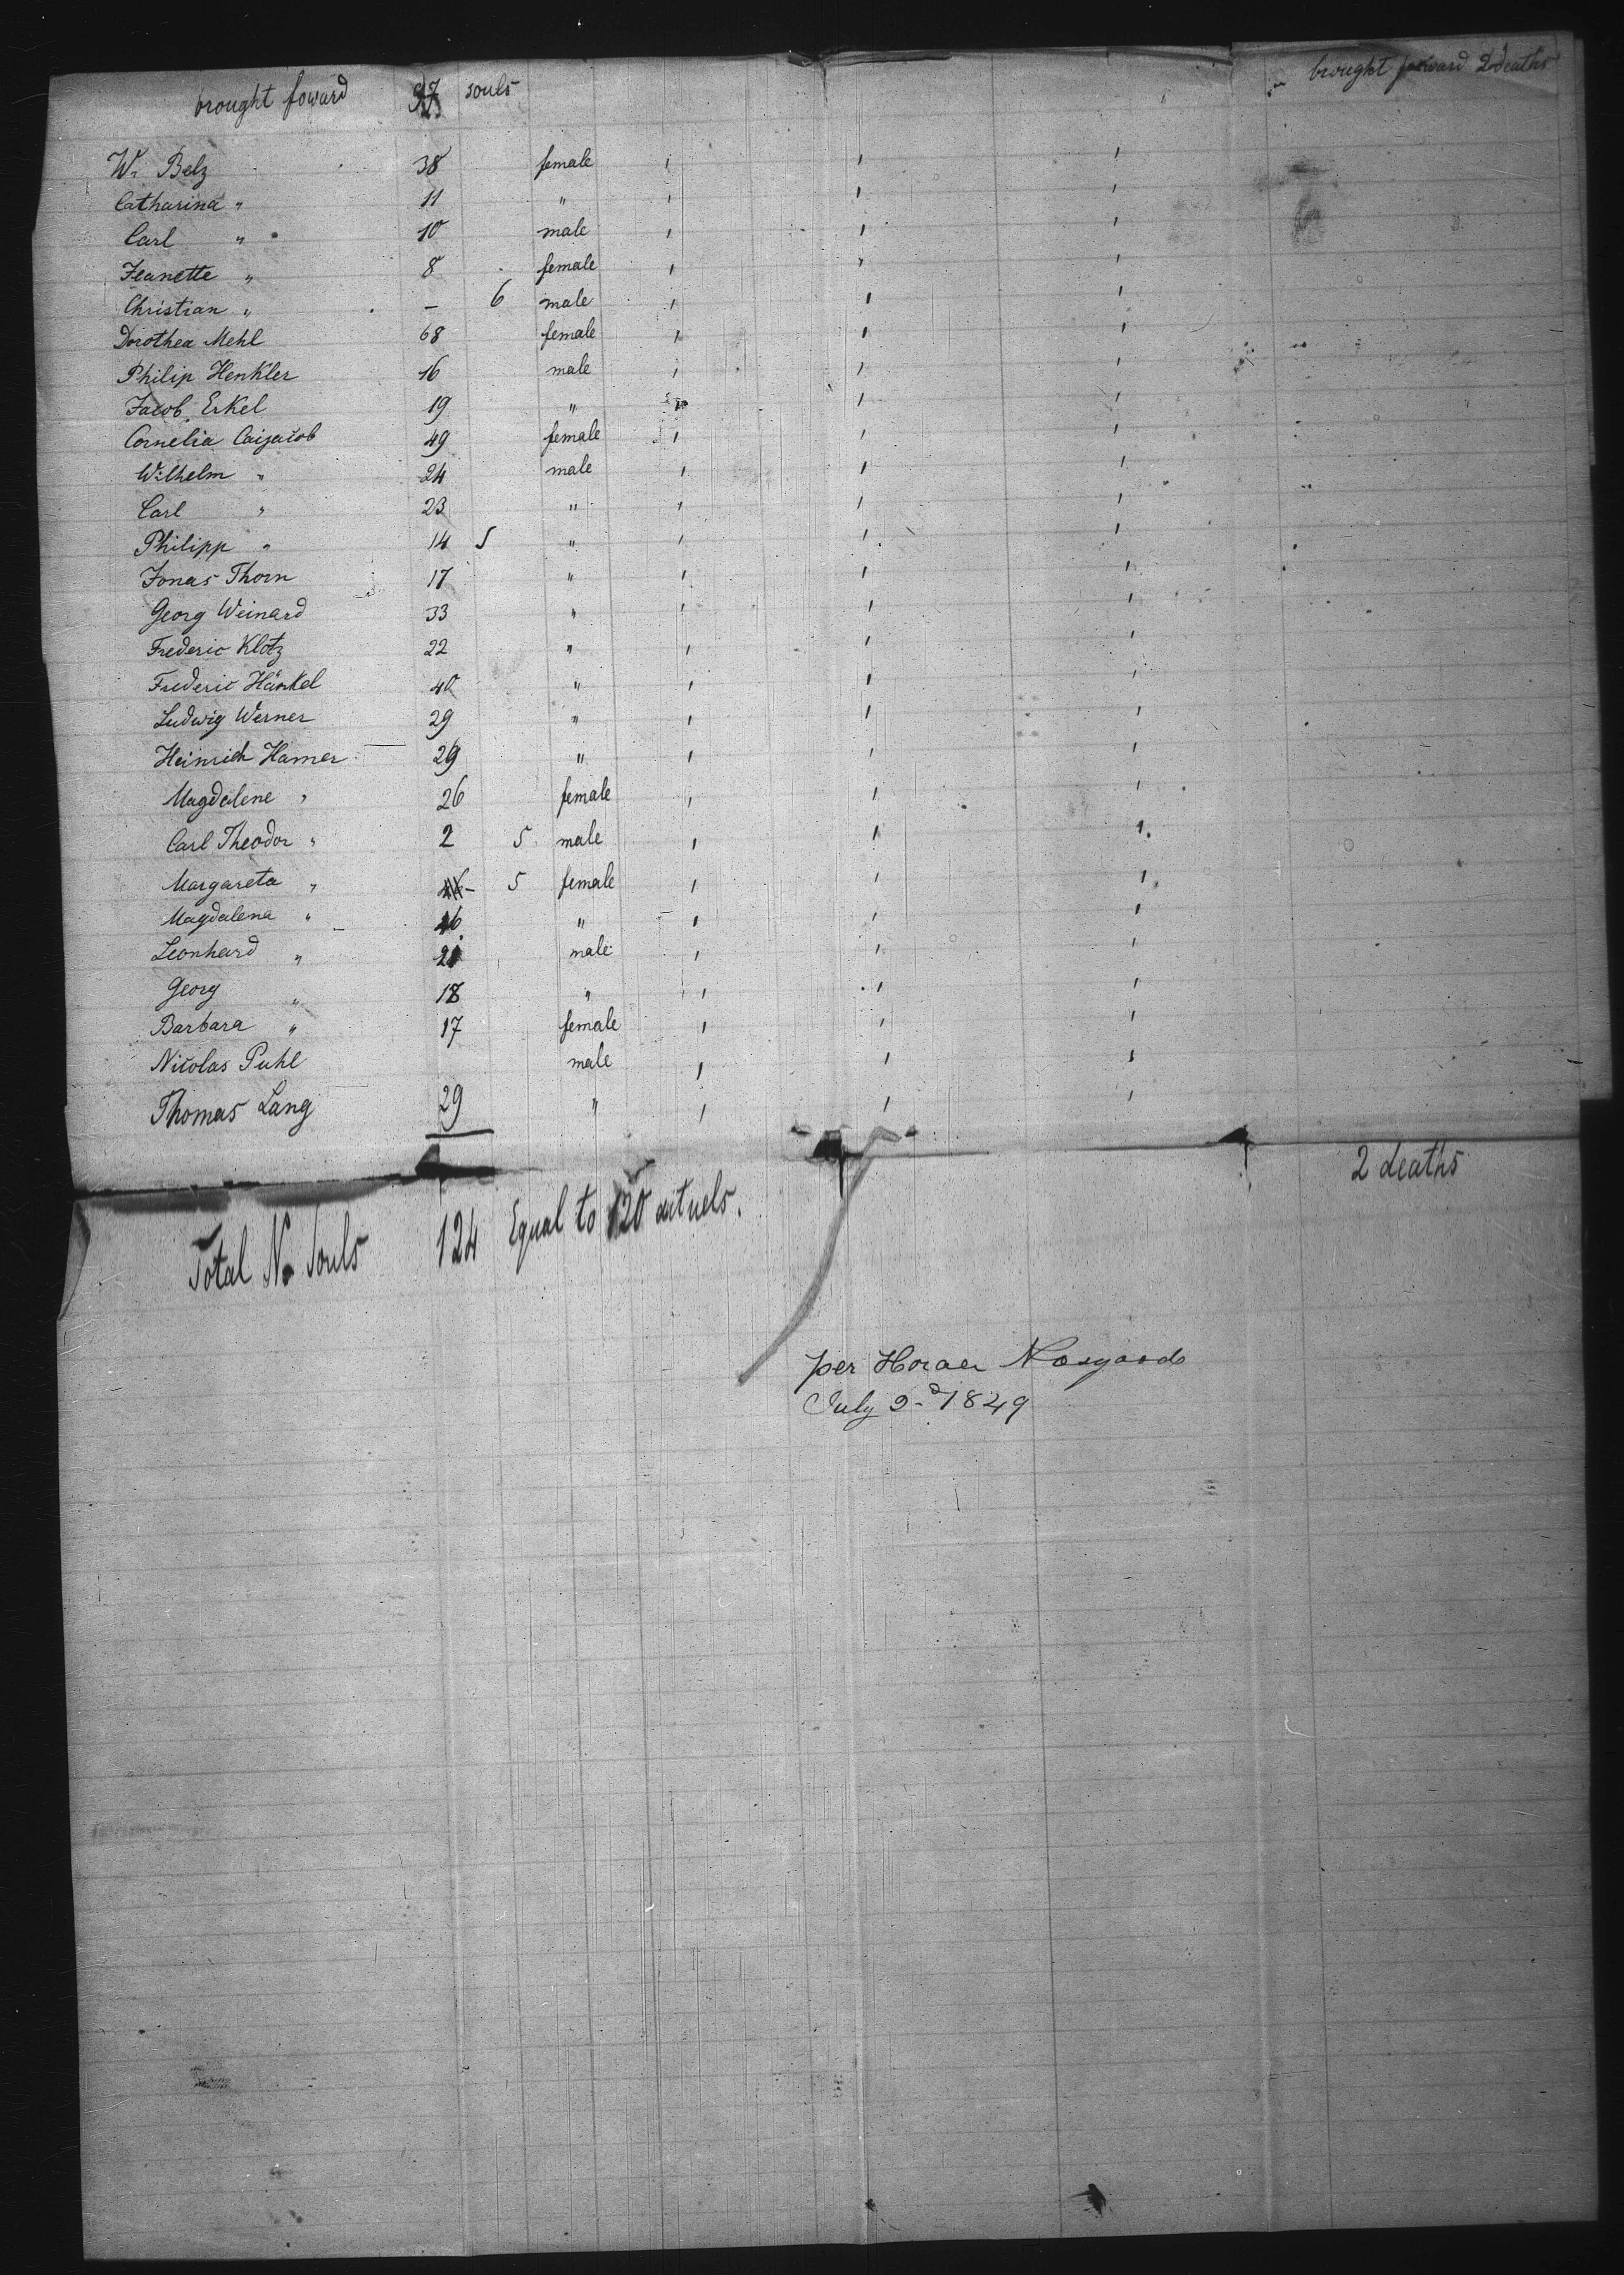 brought foward 97 souls brought forward 2 deaths
W. Belz 38 female ' ' '
Catharina " 11 " ' ' '
Carl " 10 male ' ' '
Jeanette " 8 female ' ' '
Christian " – 6 male ' ' '
Dorothea Mehl 68 female ' ' '
Philip Henkler 16 male ' ' '
Jacob Erkel 19 " ' ' '
Cornelia Caijacob 49 female ' ' '
Wilhelm " 24 male ' ' '
Carl " 23 " ' ' '
Philipp " 14 5 " ' ' '
Jonas Thorn 17 " ' ' '
Georg Weinard 33 " ' ' '
Frederic Klotz 22 " ' ' '
Frederic Hänkel 40 " ' ' '
Ludwig Werner 29 " ' ' '
Heinrich Hamer 29 " ' ' '
Magdalene " 26 female ' ' '
Carl Theodor " 2 5 male ' ' '
Margareta " – 5 female ' ' '
Magdalena " " ' ' '
Leonhard " 21 male ' ' '
Georg " 18 " ' ' '
Barbara " 17 female ' ' '
Nicolas Puhl male ' ' '
Thomas Lang 29 " ' ' '
2 deaths
Total No Souls 124 Equal to 120
per
July 2d 1849